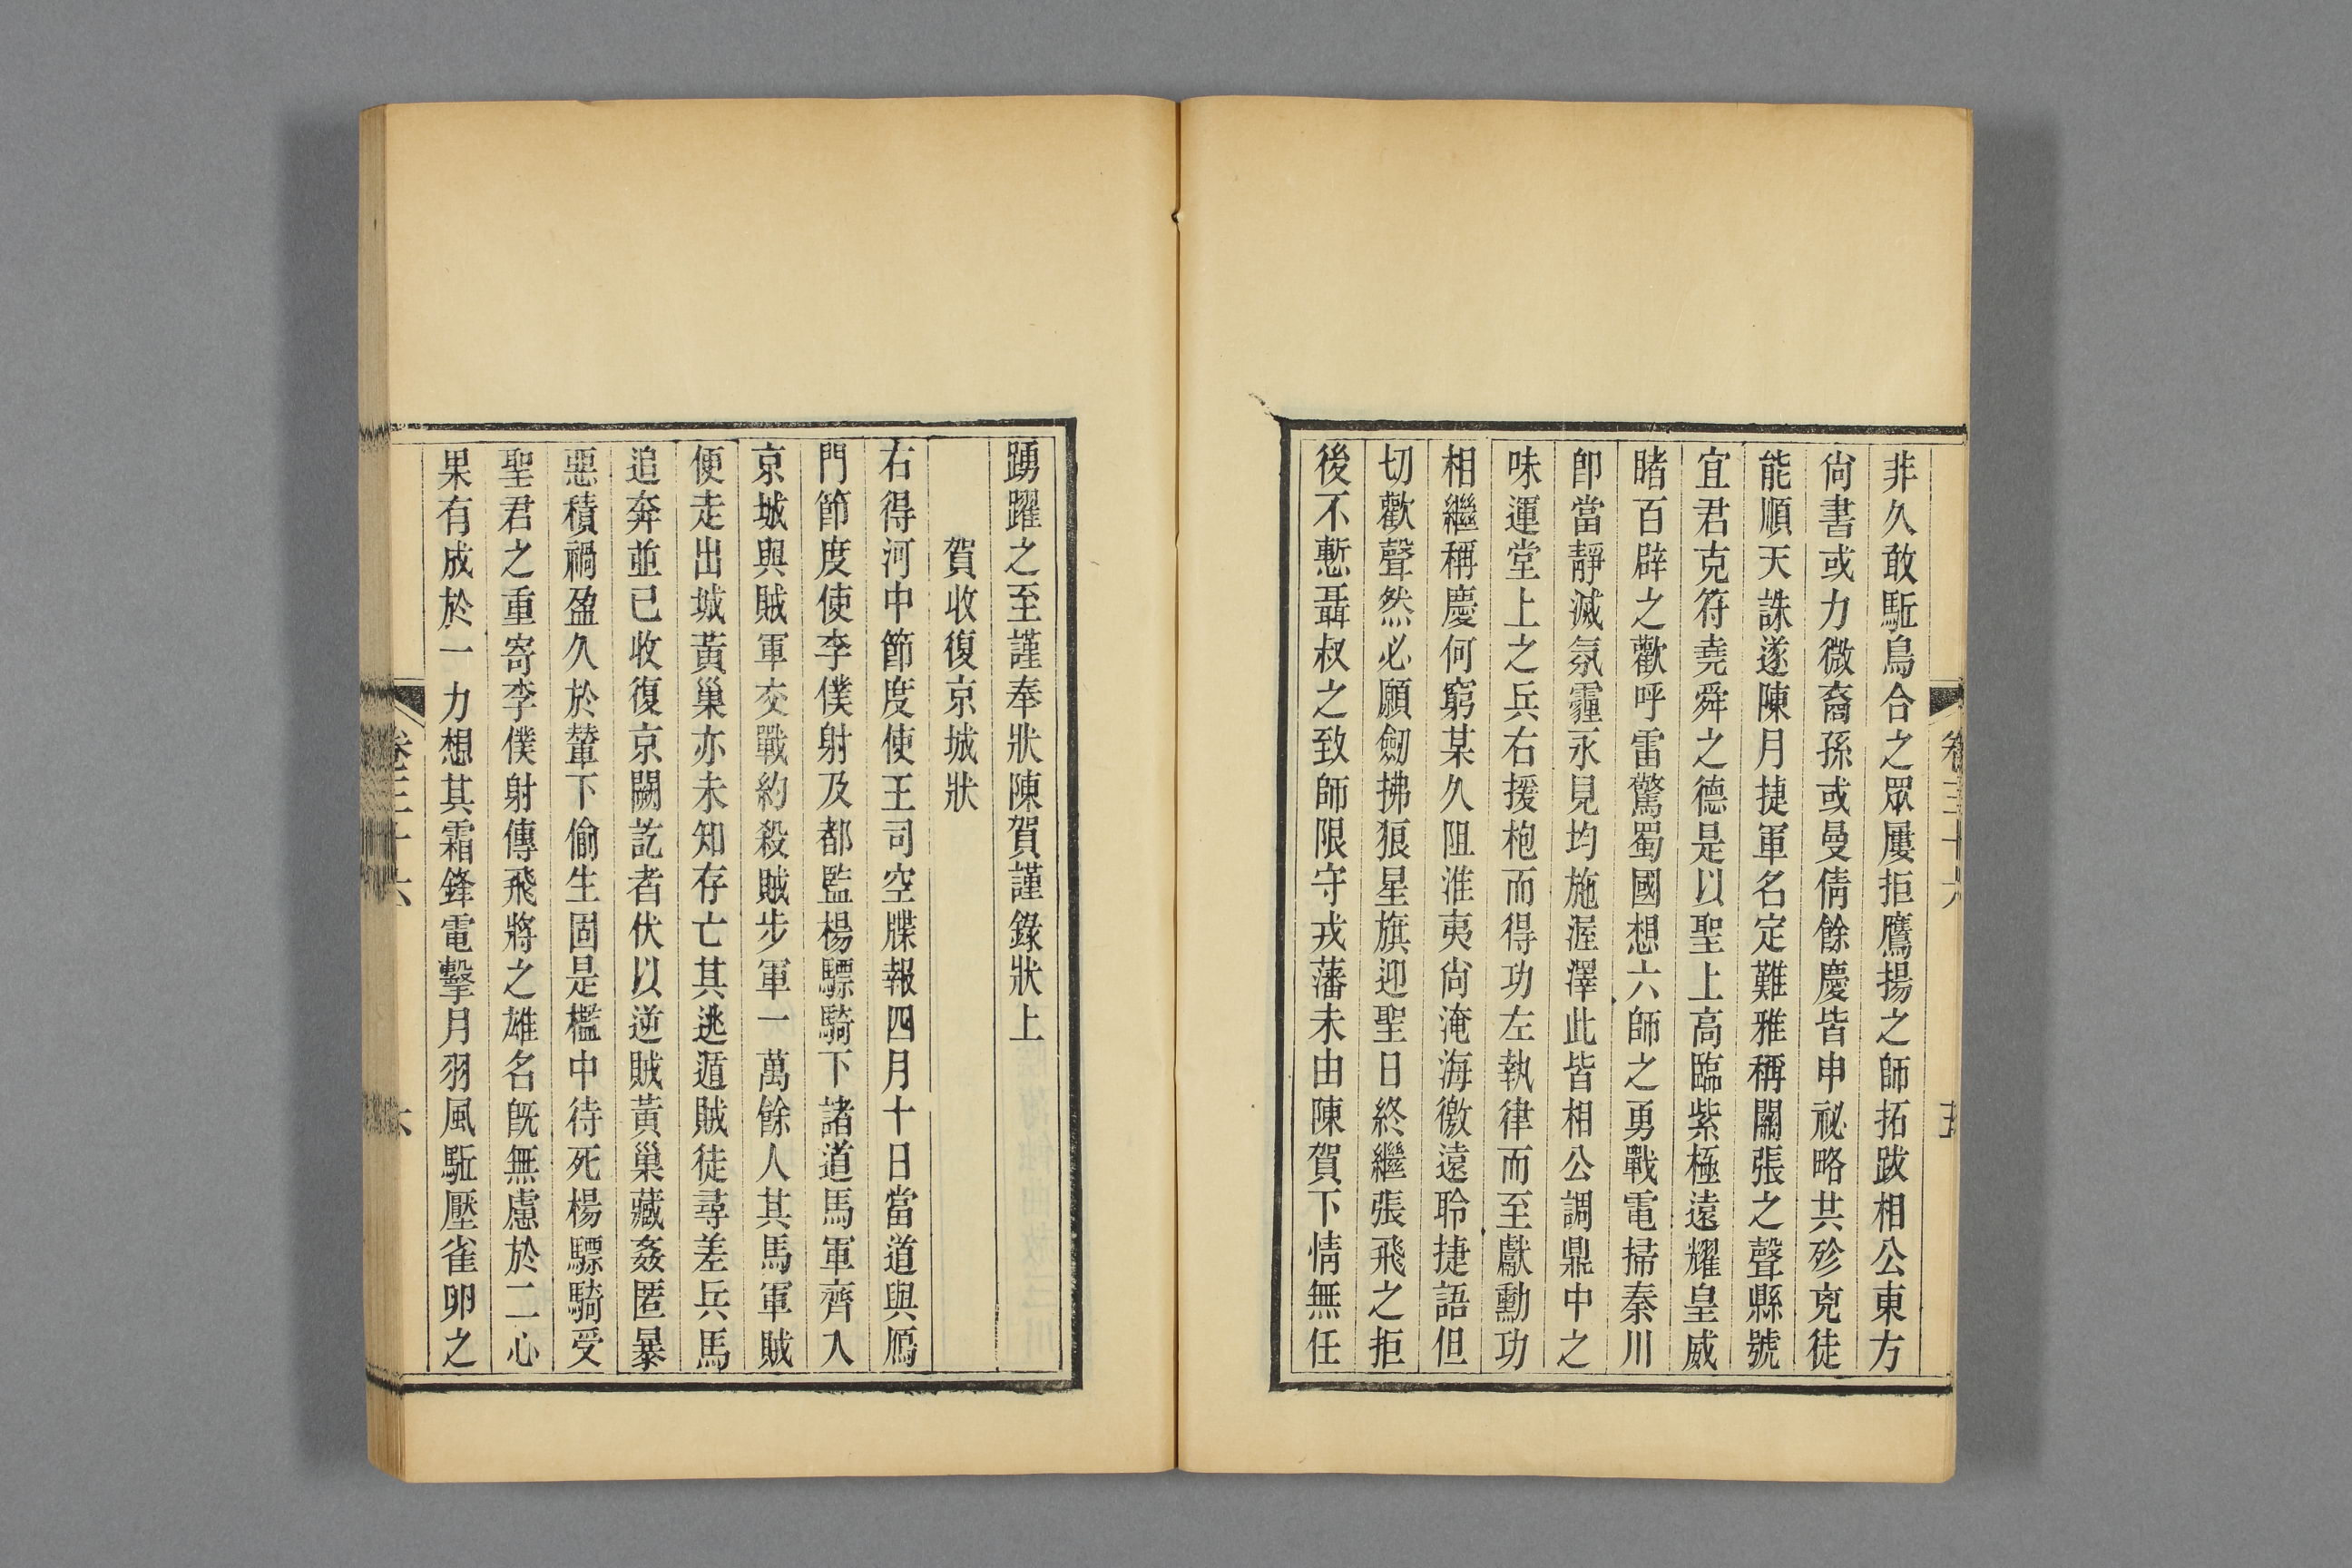 非久敢駈烏合之眾屢拒鷹揚之師拓跋相公東方
尙書或力微裔孫或曼倩餘慶皆申祕略共殄兇徒
能順天誅遂陳月捷軍名定難雅稱關張之聲縣號
宜君克符堯舜之德是以聖上高臨紫極遠耀皇威
睹百辟之歡呼雷驚蜀國想六師之勇戰電掃秦川
卽當靜滅氛霾永見均施渥澤此皆相公調鼎中之
味運堂上之兵右援枹而得功左執律而至獻勳功
相繼稱慶何窮某久阻淮夷尙淹海徼遠聆捷語但
切歡聲然必願劒拂狼星旗迎聖日終繼張飛之拒
後不慙聶叔之致師限守戎藩未由陳賀下情無任
卷三十六
五
踴躍之至謹奉狀陳賀謹錄狀上
賀收復京城狀
右得河中節度使王司空牒報四月十日當道與鴈
門節度使李僕射及都監楊驃騎下諸道馬軍齊入
京城與賊軍交戰約殺賊步軍一萬餘人其馬軍賊
便走出城黃巢亦未知存亡其逃遁賊徒尋差兵馬
追奔並已收復京闕訖者伏以逆賊黃巢藏姦匿暴
惡積禍盈久於輦下偷生固是檻中待死楊驃騎受
聖君之重寄李僕射傳飛將之雄名旣無慮於二心
果有成於一力想其霜鋒電擊月羽風駈壓雀卵之
卷三十六
六